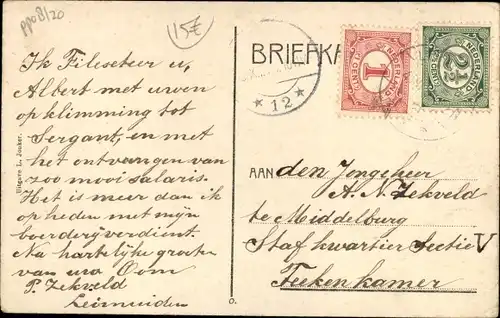 ppo8/20
15€
Ik Filiseteer u,
Albert met urven
opklimming tot
Sergant, en met
het ontvangen van
zoo mooi salaris.
Het is meer dan ik
op heden met mijn
boerderij verdient.
Na hartelijke groeten
van uw Oom
P. Zekveld
Leimuiden
Uitgave L. Jonker.
BRIEFKA
12
NEDERLAND
1
1 CENT
NEDERLAND
2½
AAN den Jongeheer
A. N. Zekveld
te Middelburg
Stafkwartier Sectie V
Teekenkamer